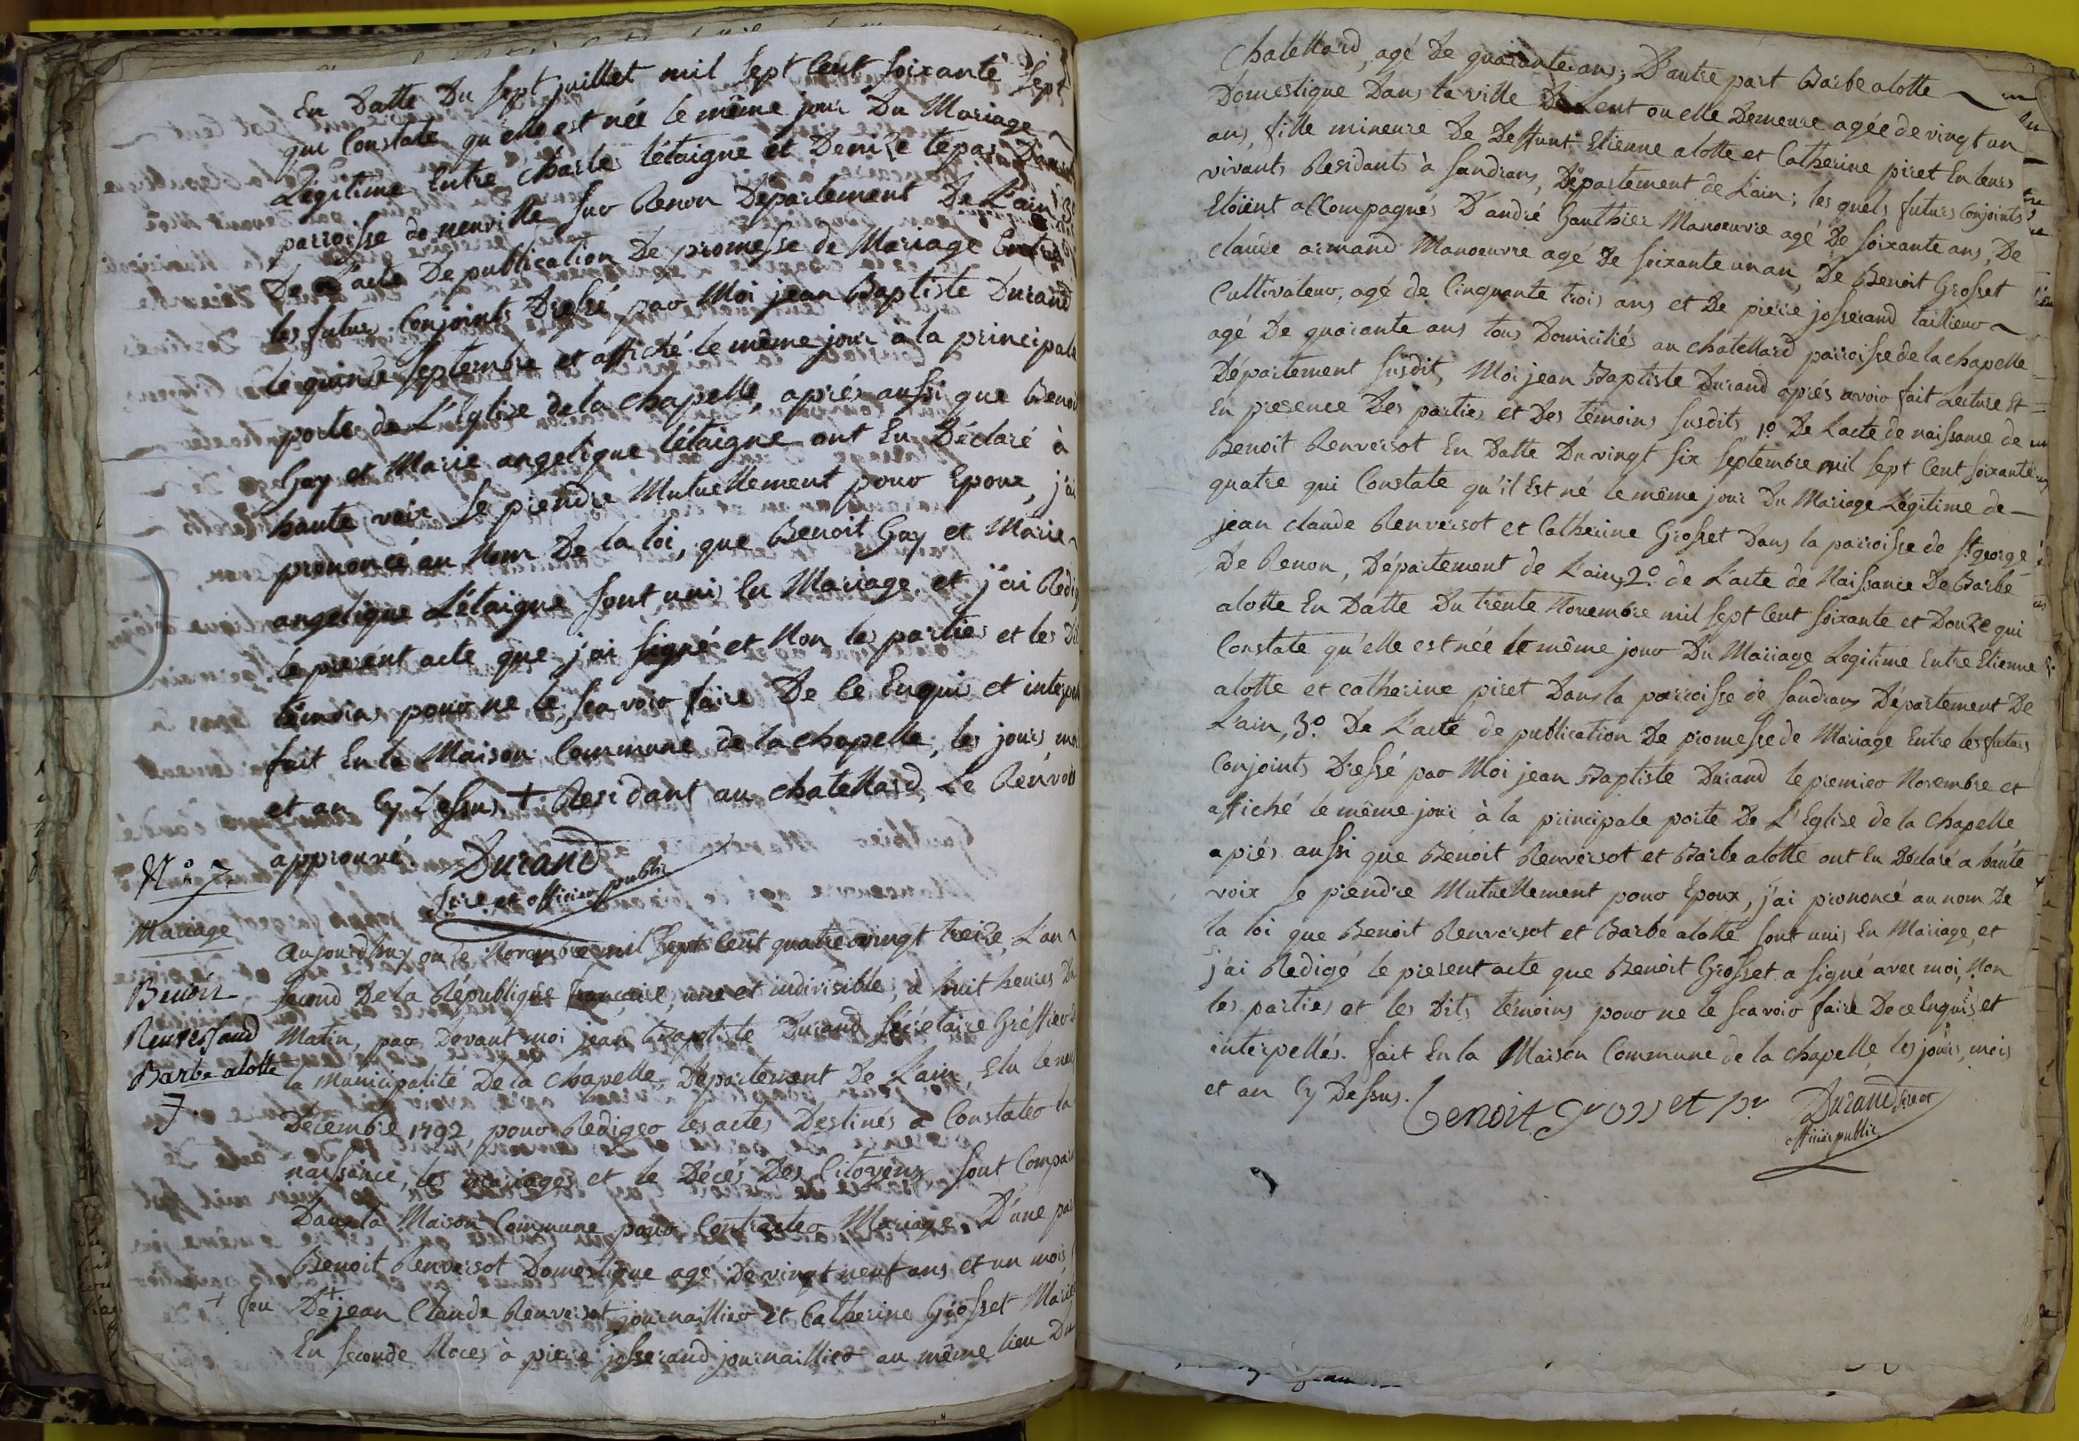 En Datte Du sept juillet mil sept Cent soixante sept
qui Constate qu'elle est née le même jour Du Mariage
Légitime Entre Charles létaigne et Denize tepas Dans la
parroisse de neuville sur Renon Département De L'ain 3º
De L'acte De publication De promesse de Mariage Entre
les futurs Conjoints Dressé par Moi jean Baptiste Durand
le quinze septembre et affiché le même jour a la principale
porte de L'Eglise de la Chapelle, aprés aussi que Benoit
Gay et Marie angelique létaigne ont Eu Déclaré à
haute voix se prendre Mutuellement pour Epoux, j'ai
prononcé au Nom De la loi, que Benoit Gay et Marie
angelique Létaigne sont unis En Mariage, et j'ai Redigé
le present acte que j'ai signé et Non les parties et les Dits
témoins pour ne le sçavoir faire De Ce Enquis et interpellés
fait En la Maison Commune de la chapelle, les jours mois
et an Cy Dessus + Residant au chatellard, Le Renvoi
approuvé. Durand
sre et officier public
Nº 7
Mariage
Benoit
Renversand
Barbe alotte
7.
aujourdhuy onze Novembre mil sept Cent quatre vingt treize, L'an
second De la République françoise, une et indivisible, à huit heures Du
Matin, par Devant moi jean Baptiste Durand sécrétaire Gréffier De
la Municipalité De la Chapelle Département De L'ain, Elu le neuf
Décembre 1792, pour Rediger les actes Destinés à Constater la
naissance, les mariages et le Décés Des Citoyens sont Comparus
Dans la Maison Commune pour Contracter Mariage, D'une part
Benoit Renversot Domestique agé De vingt neuf ans et un mois,
+ feu De + jean Claude Renversot journaillier et Catherine Grosset Mariée
En seconde Noces à pierre josserand journaillier au même lieu Du
Chatellard, agé De quarante ans; D'autre part Barbe alotte
Domestique Dans la ville De Lent ou elle Demeure agée de vingt un
ans, fille mineure De Deffunt Etienne alotte et Catherine piret En leurs
vivants Residants à Sandrans, Département de L'ain; les quels futurs Conjoints
Etoient accompagnés D'andré Gauthier Manoeuvre agé De soixante ans, De
claude armand Manoeuvre agé De soixante un an, De Benoit Grosset
Cultivateur, agé de Cinquante trois ans et De pierre josserand tailleur
agé De quarante ans tous Domiciliés au chatellard parroisse de la chapelle
Département susdit, Moi jean Baptiste Durand aprés avoir fait Lecture Et
En presence Des parties et Des témoins susdits 1º De L'acte de naissance de
Benoit Renversot En Datte Du vingt six septembre mil sept Cent soixante
quatre qui Constate qu'il Est né le même jour Du Mariage Légitime de
jean claude Renversot et Catherine Grosset Dans la parroisse de St george
De Renon, Département de L'ain, 2º de L'acte de Naissance De Barbe
alotte En Datte Du trente Novembre mil sept Cent soixante et Douze qui
Constate qu'elle est née le même jour Du Mariage Legitime Entre Etienne
alotte et catherine piret Dans la parroisse de Sandrans Département De
L'ain, 3º De L'acte de publication De promesse de Mariage Entre les futurs
Conjoints Dressé par Moi jean Baptiste Durand le premier Novembre et
affiché le même jour à la principale porte De L'Eglise de la Chapelle
aprés aussi que Benoit Renversot et Barbe alotte ont Eu Déclaré a haute
voix se prendre Mutuellement pour Epoux, j'ai prononcé au nom De
la loi que Benoit Renversot et Barbe alotte sont unis En Mariage, et
j'ai Redigé le present acte que Benoit Grosset a signé avec moi, Non
les parties et les Dits témoins pour ne le sçavoir faire De ce Enquis et
interpellés. fait En la Maison Commune de la chapelle, les jours, mois
et an Cy Dessus.
Benoit grosset Durand sre et
officier public